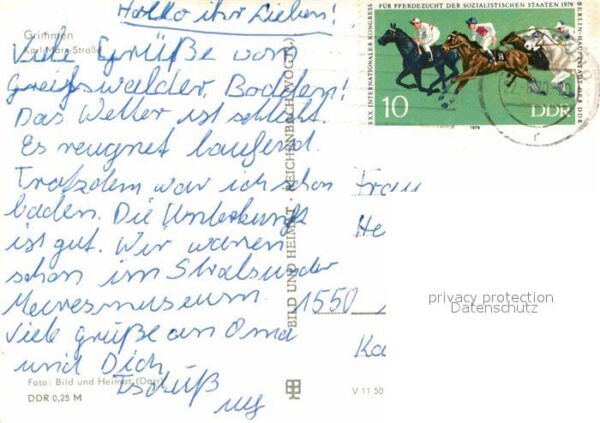 Hallo ihr Lieben!
Grimmen
Karl-Marx-Straße
Viele Grüße vom
Greifswalder Bodden!
Das Wetter ist schlecht.
Es reugnet laufend.
Trotzdem war ich schon
baden. Die Unterkunft
ist gut. Wir waren
schon im Stralsunder
Meeresmuseum.
Viele Grüße an Oma
und Dich
Tschüß
Foto: Bild und Heimat (Darr)
DDR 0,25 M
V 11 50
BILD UND HEIMAT · REICHENBACH (VOGTL)
XXX. INTERNATIONALER KONGRESS
FÜR PFERDEZUCHT DER SOZIALISTISCHEN STAATEN 1979
BERLIN · HAUPTSTADT DER DDR
10
DDR
1979
Frau
He
1550
Ka
privacy protection
Datenschutz